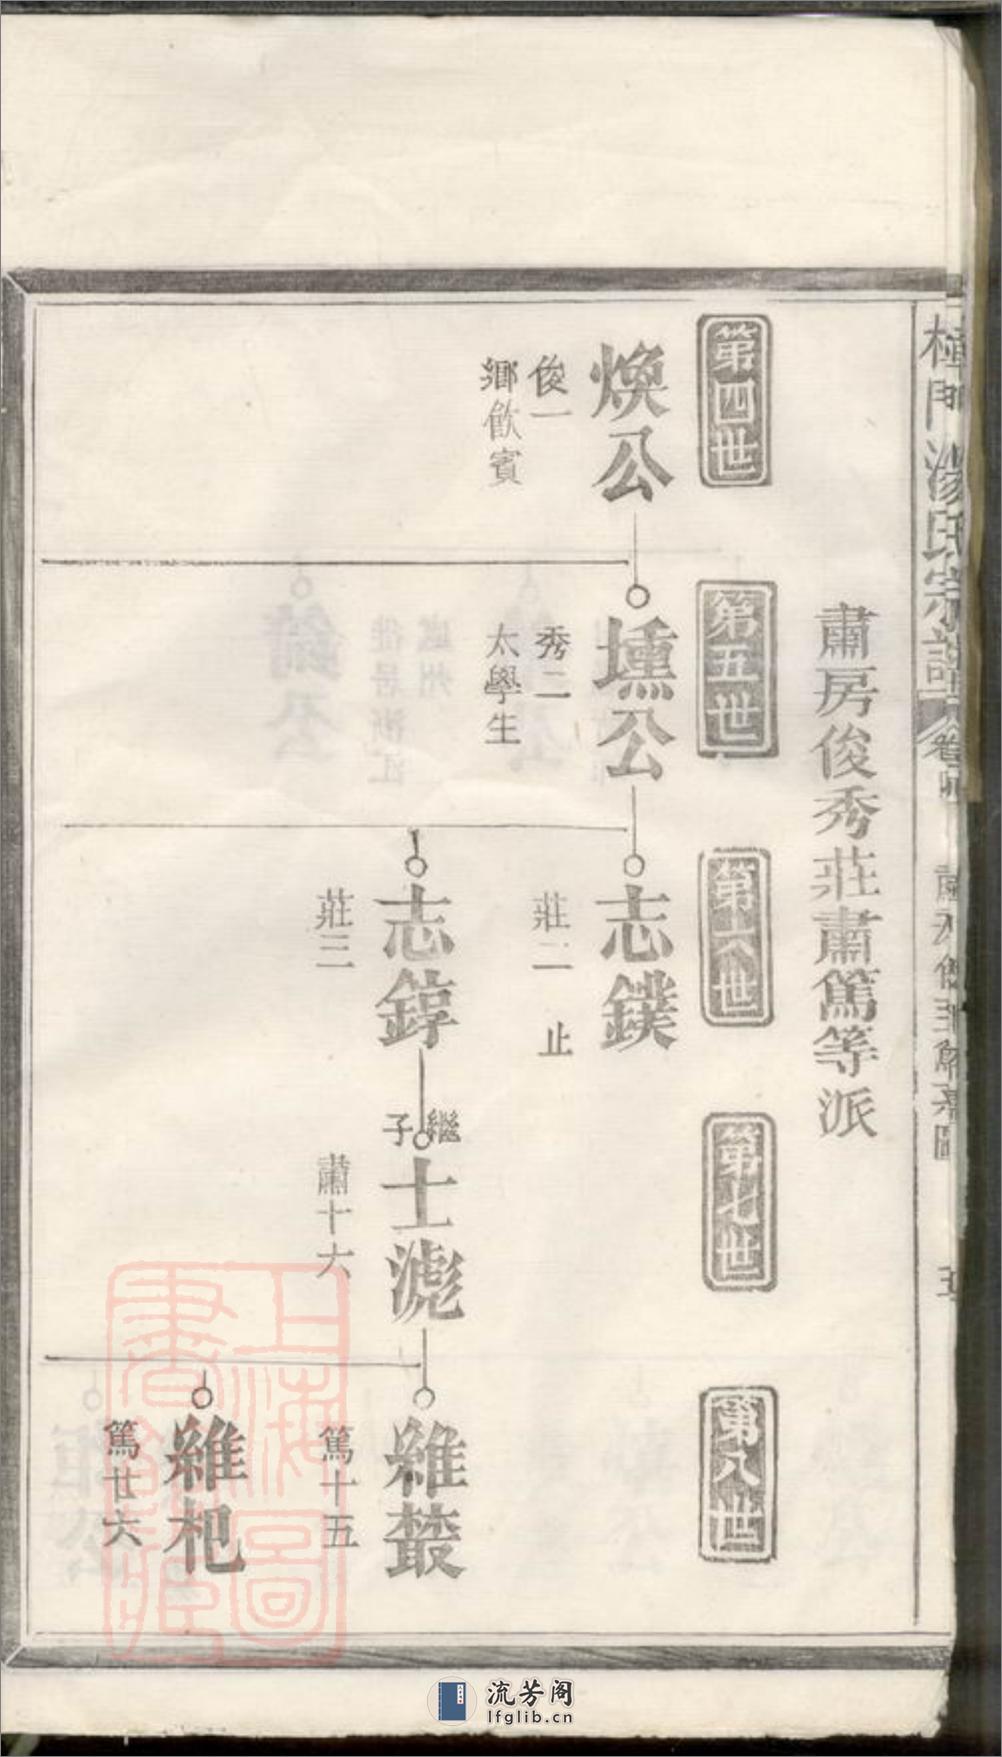 湯氏宗譜
肅房俊秀莊肅篤等派
第四世
第五世
第六世
第七世
第八世
煥公
俊一
鄉飲賓
壎公
秀二
太學生
志鏷
莊二 止
志錞
莊三
繼子
士滮
肅十六
維藂
篤十五
維杷
篤廿六
上海圖書館藏
流芳阁
lfglib.cn